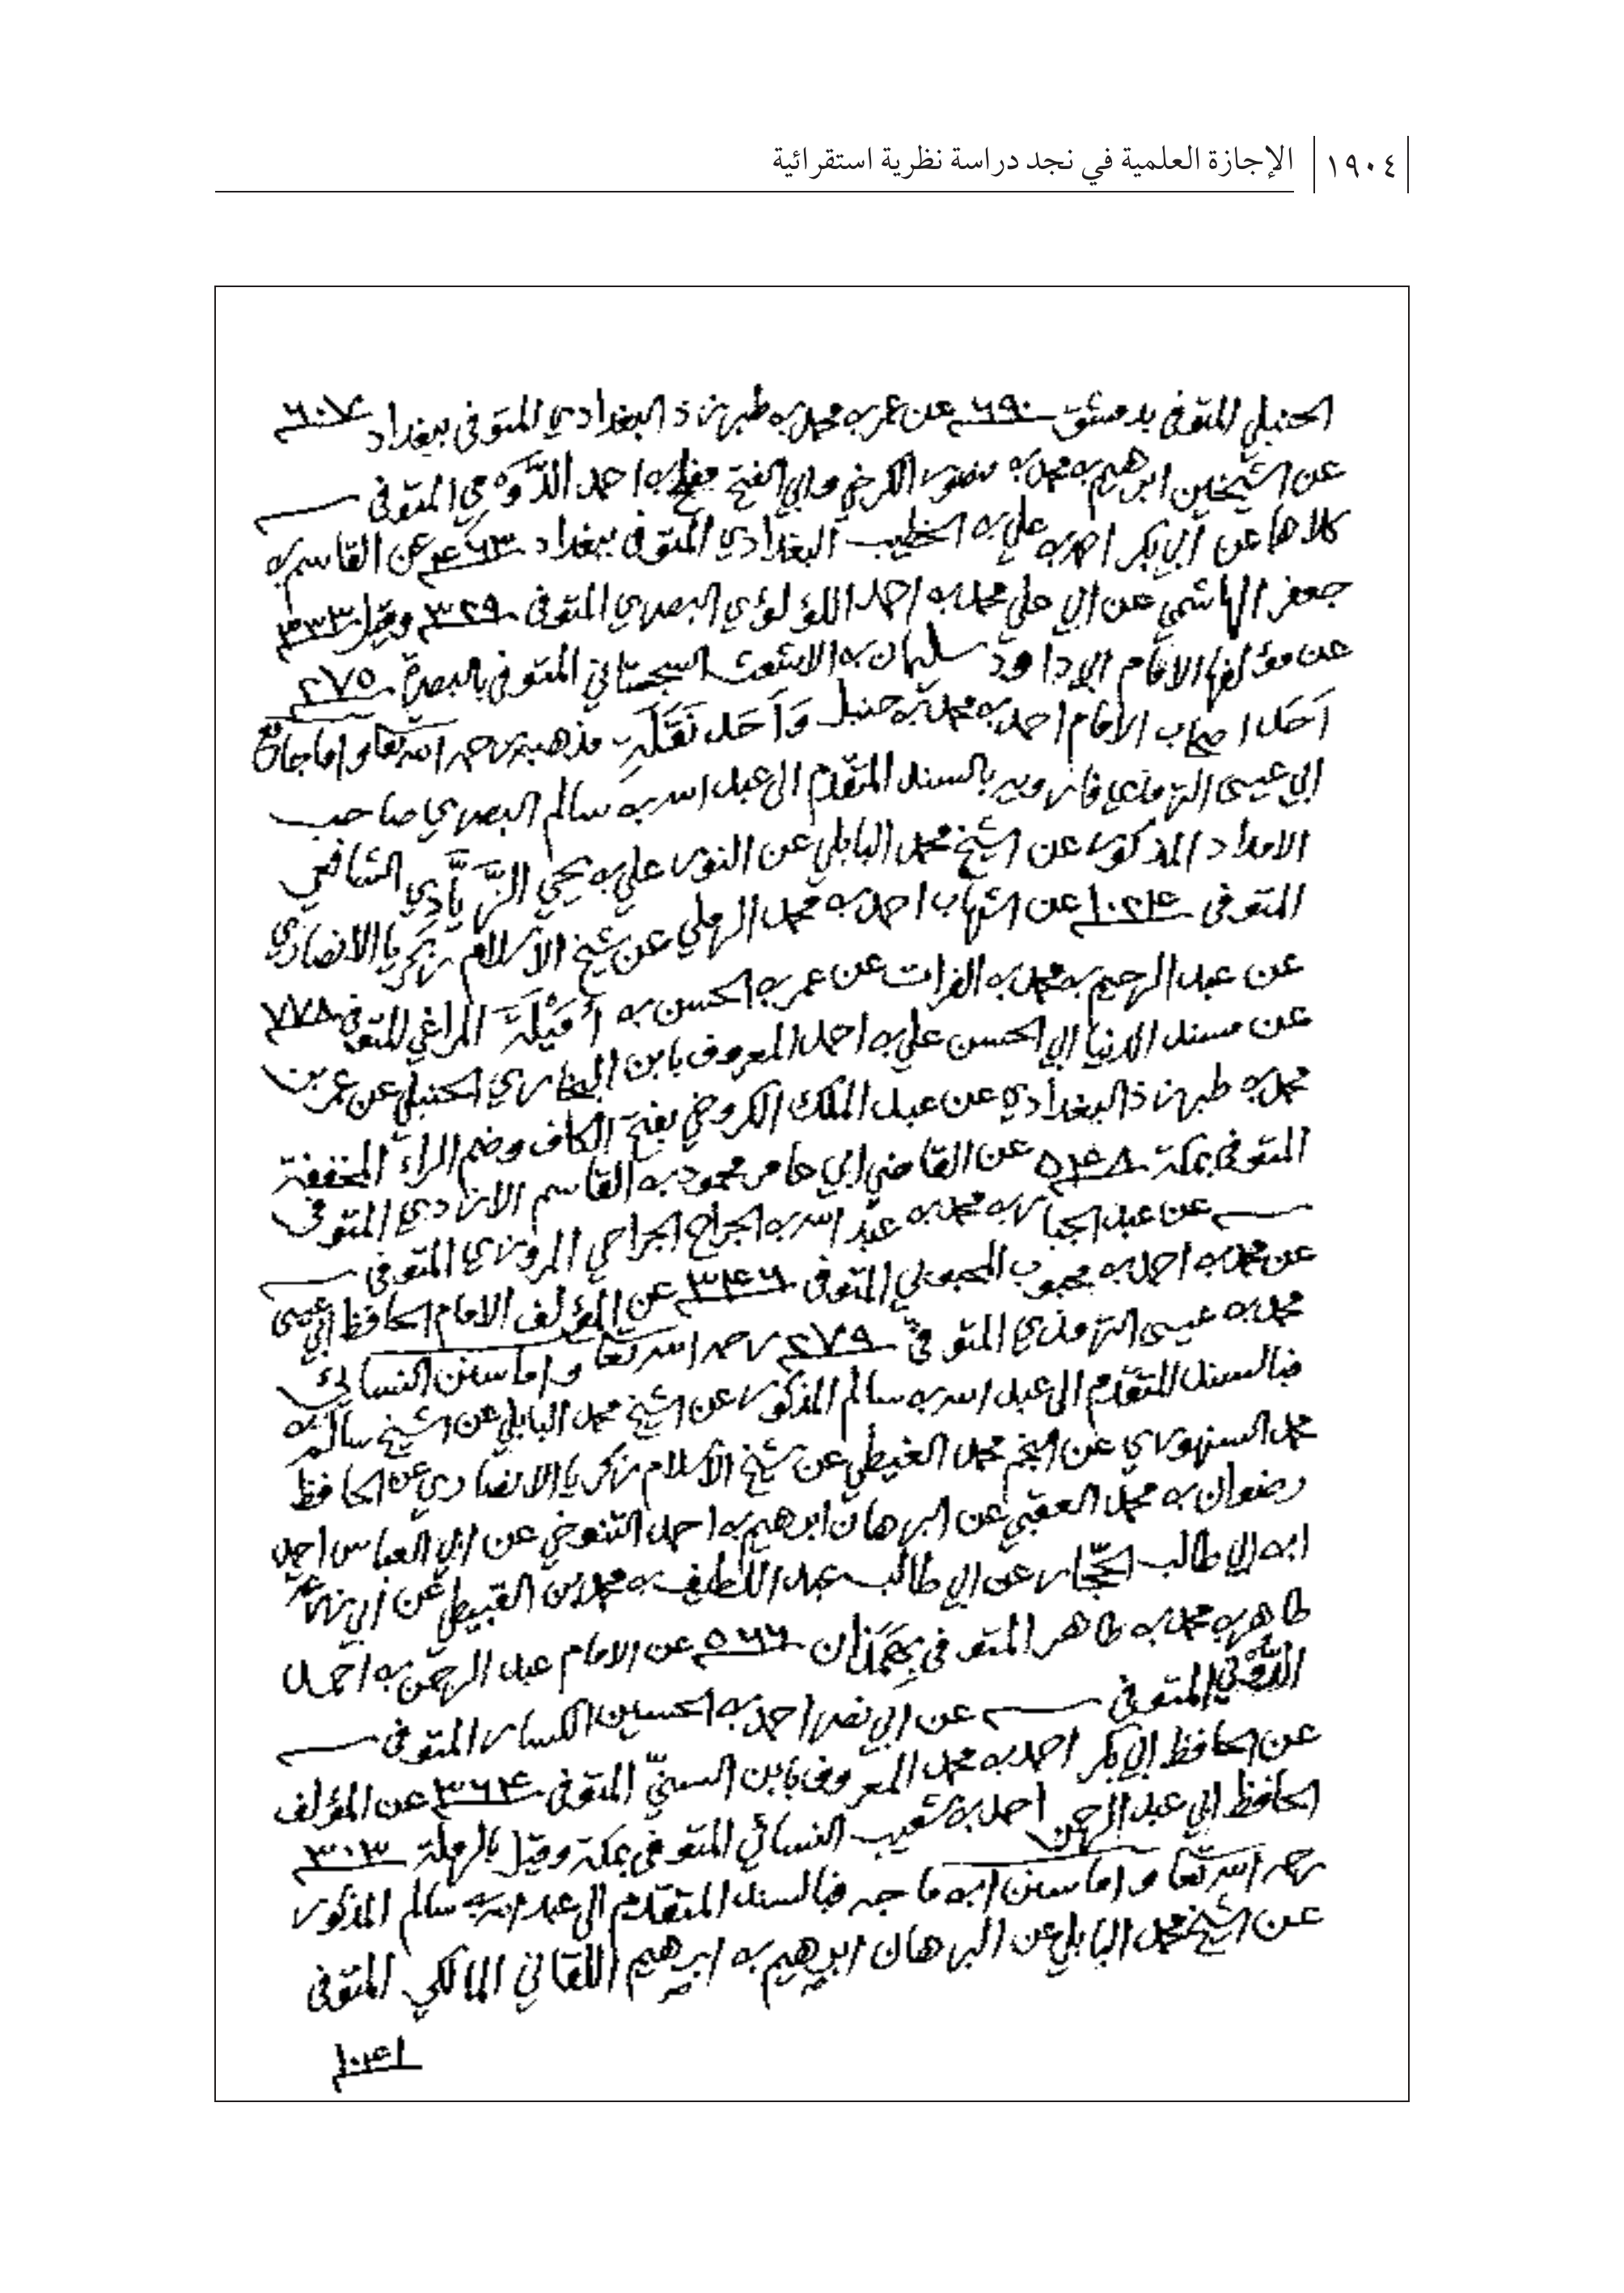 ١٩٠٤ الإجازة العلمية في نجد دراسة نظرية استقرائية
الحنبلي المتوفى بدمشق ٦٩٠ عن عمر به محمد به طبرزذ البغدادي المتوفى ببغداد ٦٠٧
عن الشيخين ابرهيم به محمد به منصور الكرخي وابي الفتح مفلح به احمد الدَّومي المتوفى
كلاهما عن ابي بكر احمد به علي به الخطيب البغدادي المتوفى ببغداد ٤٦٣ عن القاسم به
جعفر الهاشمي عن ابي علي محمد به احمد اللؤلؤي البصري المتوفى ٣٢٩ وقيل ٣٣٣
عن مؤلفها الامام ابي داود سليمان به الاشعث السجستاني المتوفى بالبصرة ٢٧٥
اَحَد اصحاب الامام احمد به محمد به حنبل وَاَحَد نَقَلَة مذهبه رحمه الله تعا واما جامع
ابي عيسى الترمذي فارويه بالسند المتقدم الى عبد الله به سالم البصري صاحب
الامداد المذكور عن الشيخ محمد البابلي عن النور علي به يحيى الزَّيَّادي الشافعي
المتوفى ١٠٢٤ عن الشهاب احمد به محمد الرملي عن شيخ الاسلام زكريا الانصاري
عن عبد الرحيم به محمد به الفرات عن عمر به الحسن به أُمَيْلَة المراغي المتوفى ٧٧٨
عن مسند الدنيا ابي الحسن علي به احمد المعروف بابن البخاري الحنبلي عن عمر بن
محمد به طبرزذ البغدادي عن عبد الملك الكروخي بفتح الكاف وضم الراء المخففة
المتوفى بمكة ٥٤٨ عن القاضي ابي عامر محمود به القاسم الازدي المتوفى
عن عبد الجبار به محمد به عبد الله به الجراح الجراحي المروزي المتوفى
عن محمد به احمد به محبوب المحبوبي المتوفى ٣٤٦ عن المؤلف الامام الحافظ ابي عيسى
محمد به عيسى الترمذي المتوفى ٢٧٩ رحمه الله تعا واما سنن النسائي
فبالسند المتقدم الى عبد الله به سالم المذكور عن الشيخ محمد البابلي عن الشيخ سالم به
محمد السنهوري عن النجم محمد الغيطي عن شيخ الاسلام زكريا الانصاري عن الحافظ
رضوان به محمد العقبي عن البرهان ابرهيم به احمد التنوخي عن ابي العباس احمد
ابه ابي طالب الحجّار عن ابي طالب عبد اللطيف به محمد بن القبيطي عن ابي زرعة
طاهر به محمد به طاهر المتوفى بهَمَذان ٥٦٦ عن الامام عبد الرحمن به احمد
الدُّوني المتوفى عن ابي نصر احمد به الحسين الكسار المتوفى
عن الحافظ ابي بكر احمد به محمد المعروف بابن السنيّ المتوفى ٣٦٤ عن المؤلف
الحافظ ابي عبد الرحمن احمد به شعيب النسائي المتوفى بمكة وقيل بالرملة ٣٠٣
رحمه الله تعا واما سنن ابه ماجه فبالسند المتقدم الى عبد الله به سالم المذكور
عن الشيخ محمد البابلي عن البرهان ابرهيم به ابرهيم اللقاني المالكي المتوفى
١٠٤١